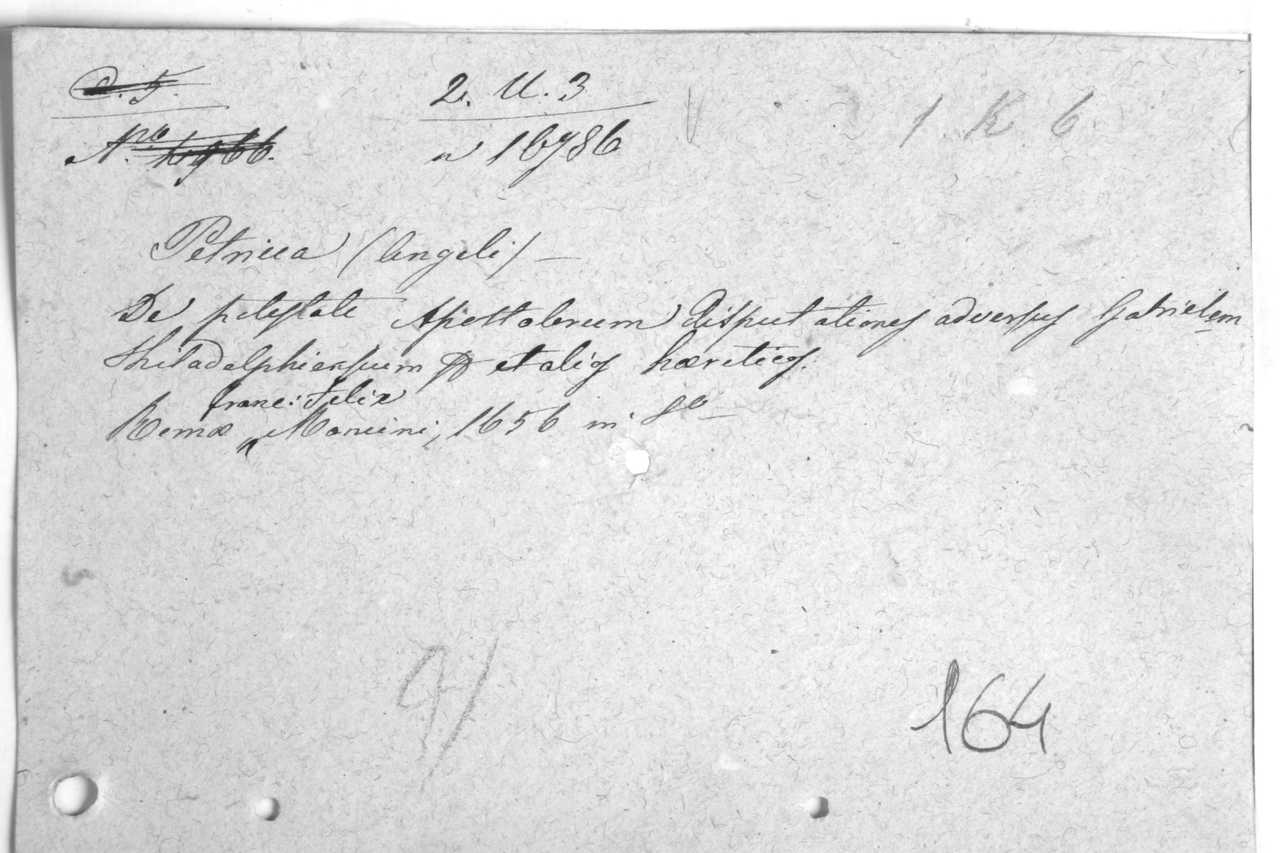 C. 5. 2. U. 3 1. K 6.
Nro 14966. n 16786
Petricca (Angeli) —
De potestate Apostolorum disputationes adversus Gabrielem
Philadelphiensium et alios hæreticos.
Franc: Felix
Romæ Mancini, 1656 in 8o —
9/
164